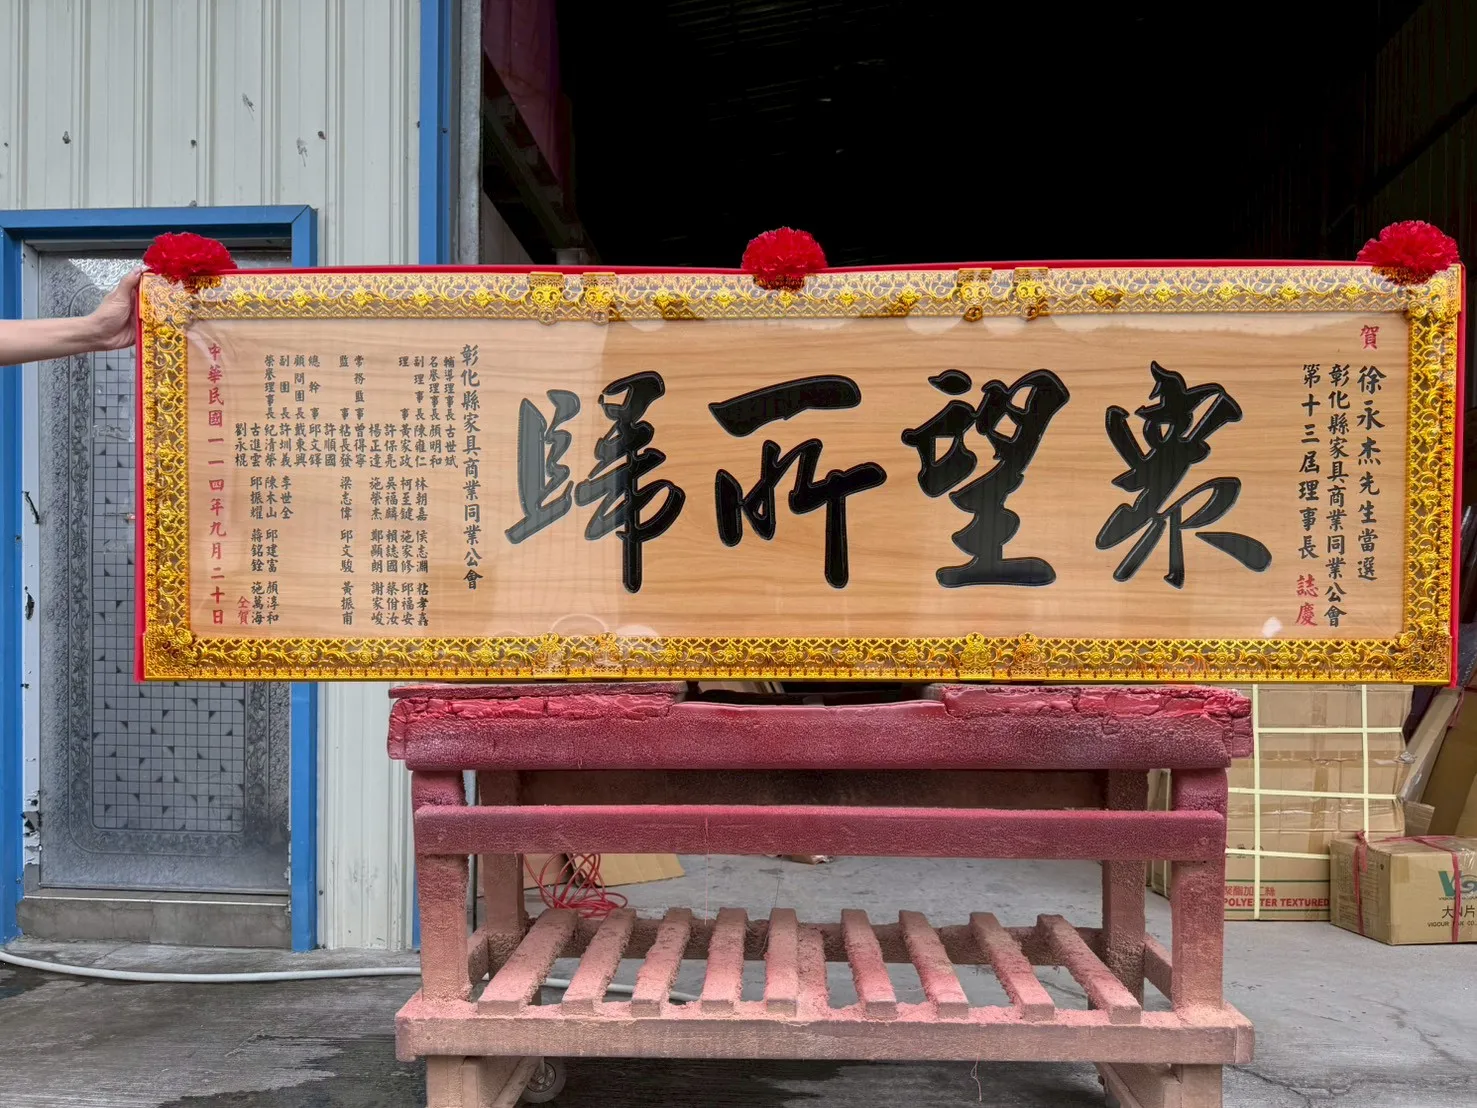 賀
徐永杰先生當選
彰化縣家具商業同業公會
第十三屆理事長 誌慶
衆望所歸
彰化縣家具商業同業公會
輔導理事長古世斌
名譽理事長顏明和
副理事長陳雍仁 林朝嘉 侯志淵 粘孝鑫
理事黃家政 柯至鍵 施家修 邱福安
許保亮 吳福麟 賴誌國 蔡佾汝
楊正達 施榮杰 鄭顯朗 謝家峻
常務監事曾得寧
監事粘長發 梁志偉 邱文駿 黃振甫
許順國
總幹事邱文鐸
顧問團長戴東興
副團長許圳義 李世全
榮譽理事長紀清榮 陳木山 邱建富 顏淳和
古進雲 邱振耀 蔣銘銓 施萬海
劉永棍 仝賀
中華民國一一四年九月二十日
聚酯加工絲
POLYESTER TEXTURED